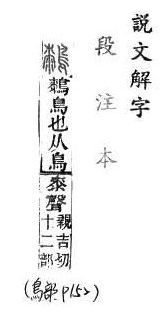 說文解字
段注本
鳥也从鳥桼聲
親吉切
十二部
(鳥部 P152)